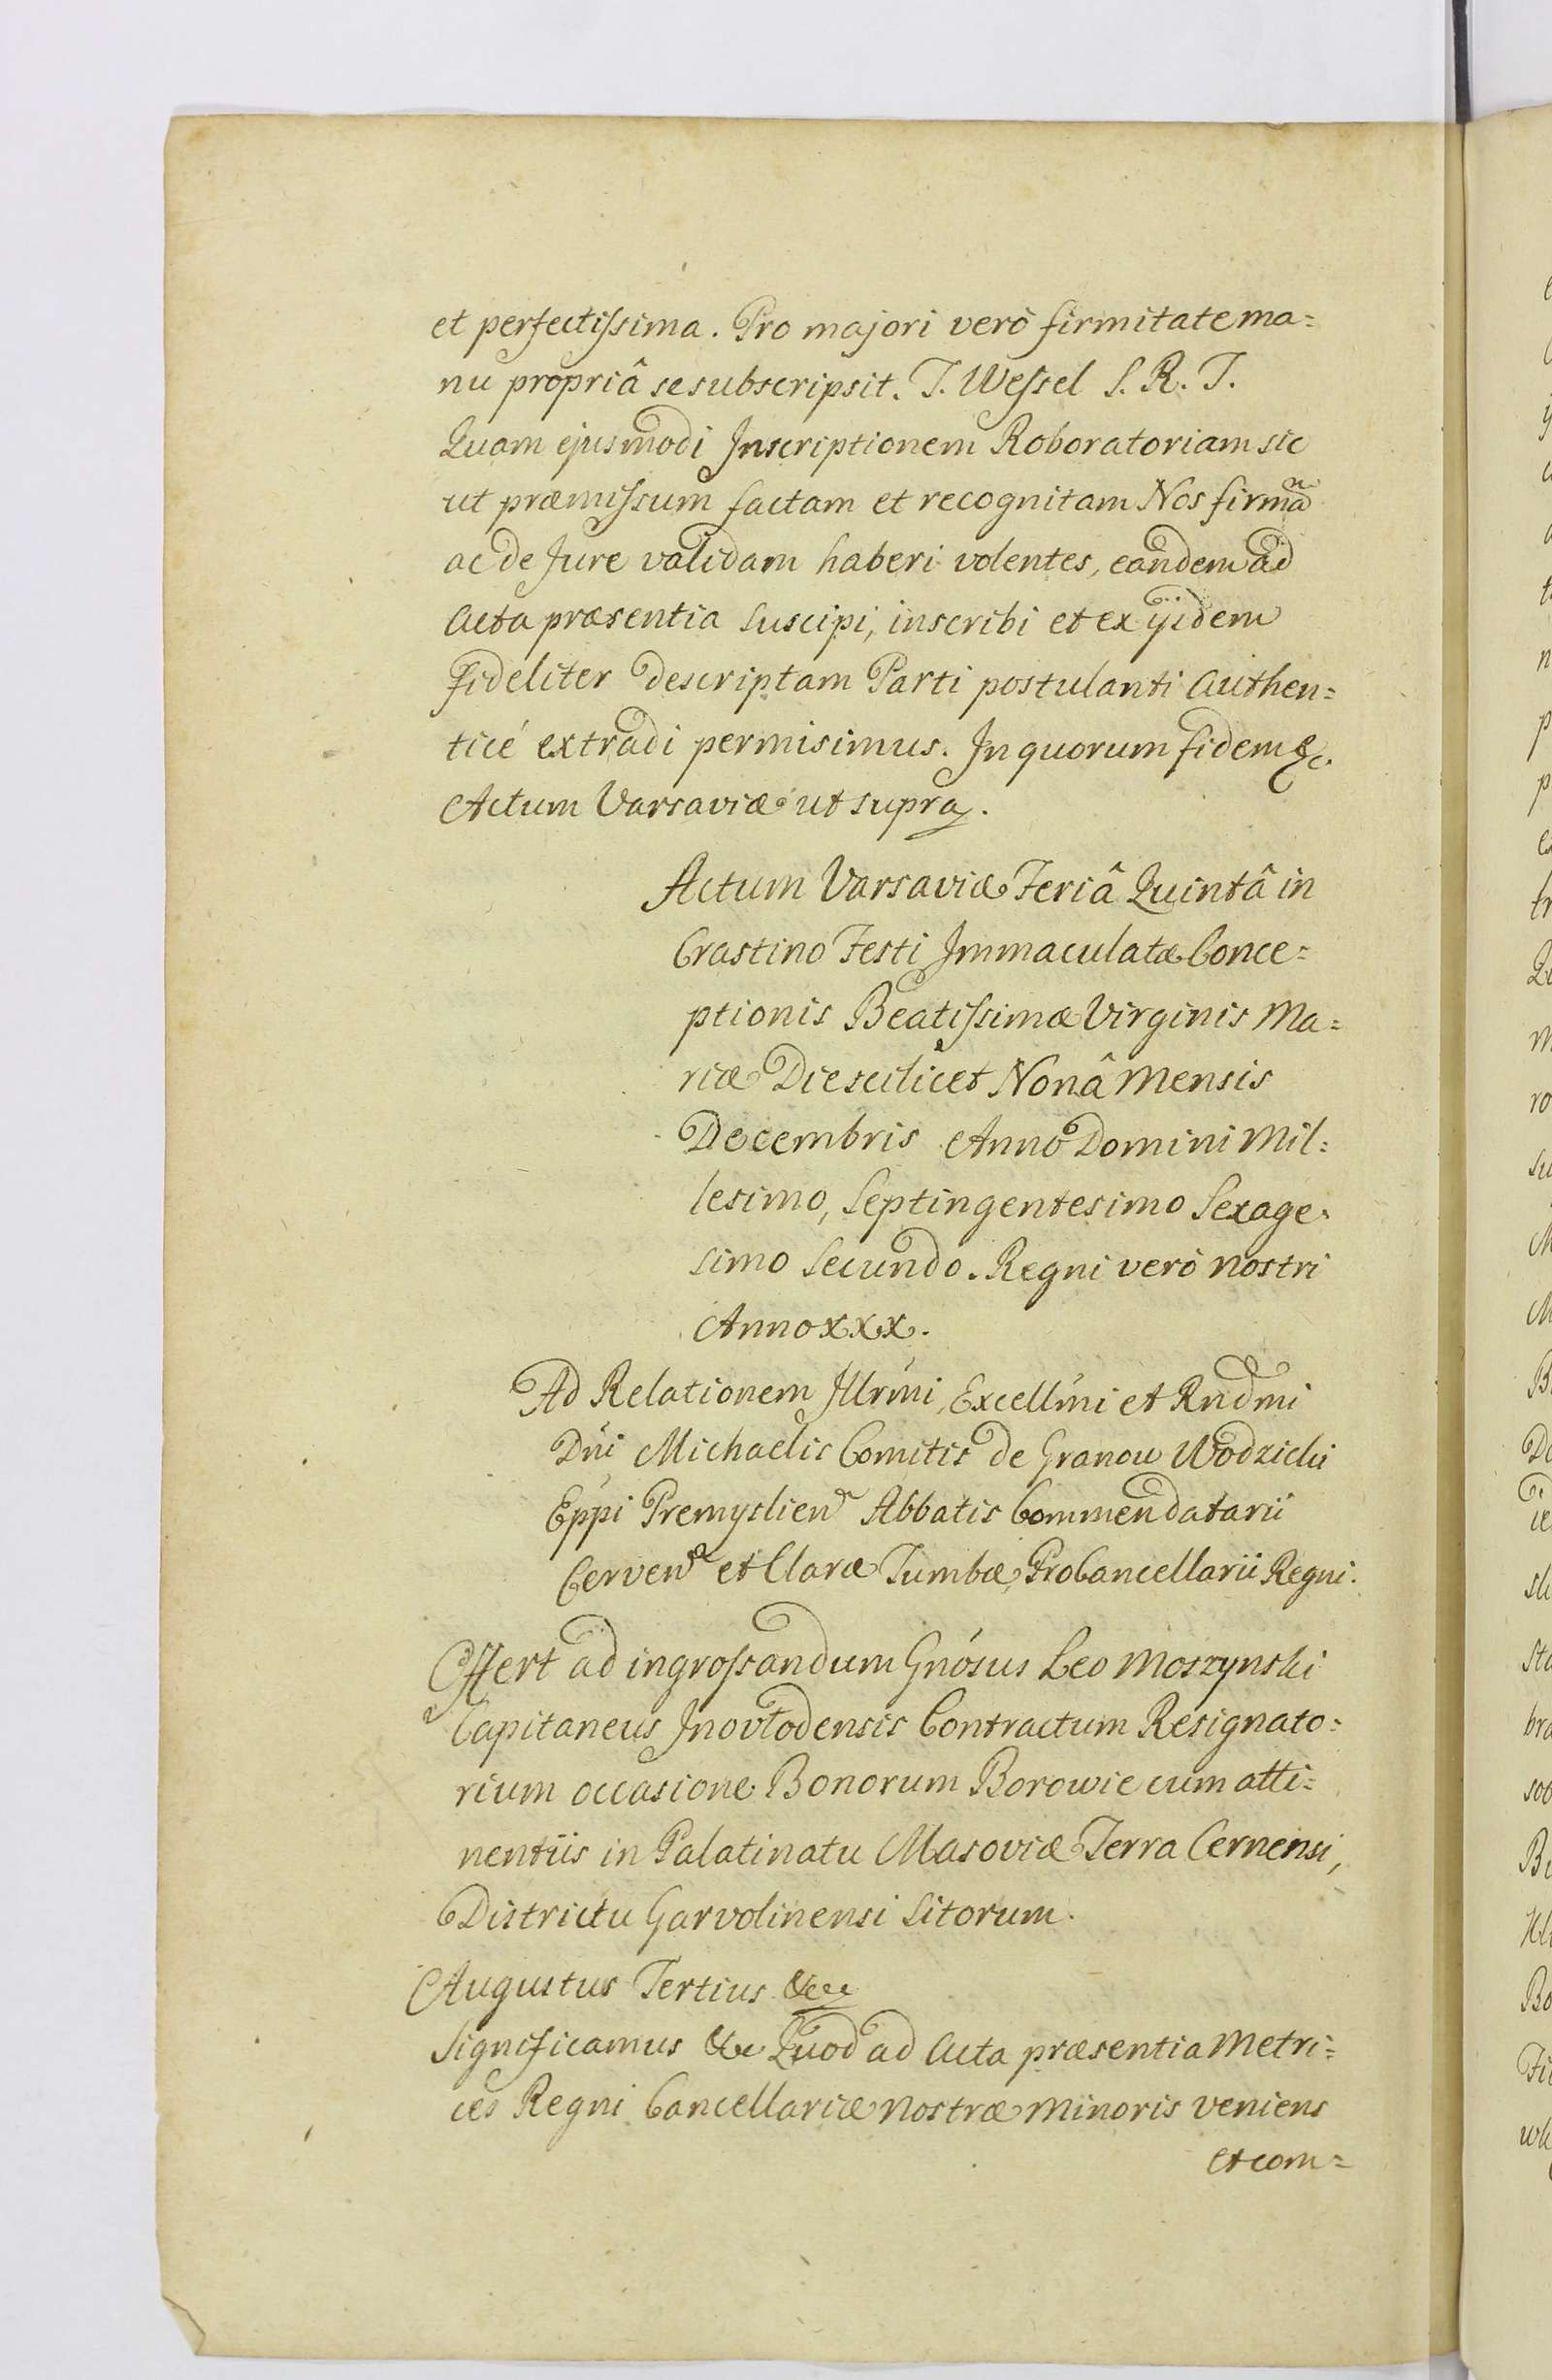 et perfectiſsima. Pro majori verò firmitate ma=
nu propriâ se subscripsit. T. Weſsel S. R. T.
Quam ejusmodi Inscriptionem Roboratoriam sic
ut præmiſsum factam et recognitam Nos firmã
ac de Jure validam haberi volentes, eandem ad
Acta præsentia suscipi, inscribi et ex ijsdem
fideliter descriptam Parti postulanti Authen=
ticé extradi permisimus. In quorum fidem &c.
Actum Varsaviæ ut supra.
Actum Varsaviæ Feriâ Quintâ in
Crastino Festi Immaculatæ Conce=
ptionis Beatiſsimæ Virginis Ma=
riæ Die scilicet Nonâ Mensis
Decembris Anno Domini Mil=
lesimo, Septingentesimo Sexage=
simo Secundo. Regni verò nostri
Anno XXX.
Ad Relationem Illrmi, Excellmi et Rndmi
Dni Michaelis Comitis de Granow Wodzicki
Eppi Premyslien Abbatis Commendatarii
Cerven et Claræ Tumbæ, ProCancellarii Regni.
Offert ad ingroſsandum Gnosus Leo Moszynski
Capitaneus Inovlodensis Contractum Resignato=
rium occasione Bonorum Borowie cum atti=
nentiis in Palatinatu Masoviæ Terra Cernensi,
Districtu Garvolinensi Sitorum.
Augustus Tertius &cc
Significamus &c Quod ad Acta præsentia Metri=
ces Regni Cancellariæ nostræ Minoris veniens
et com=